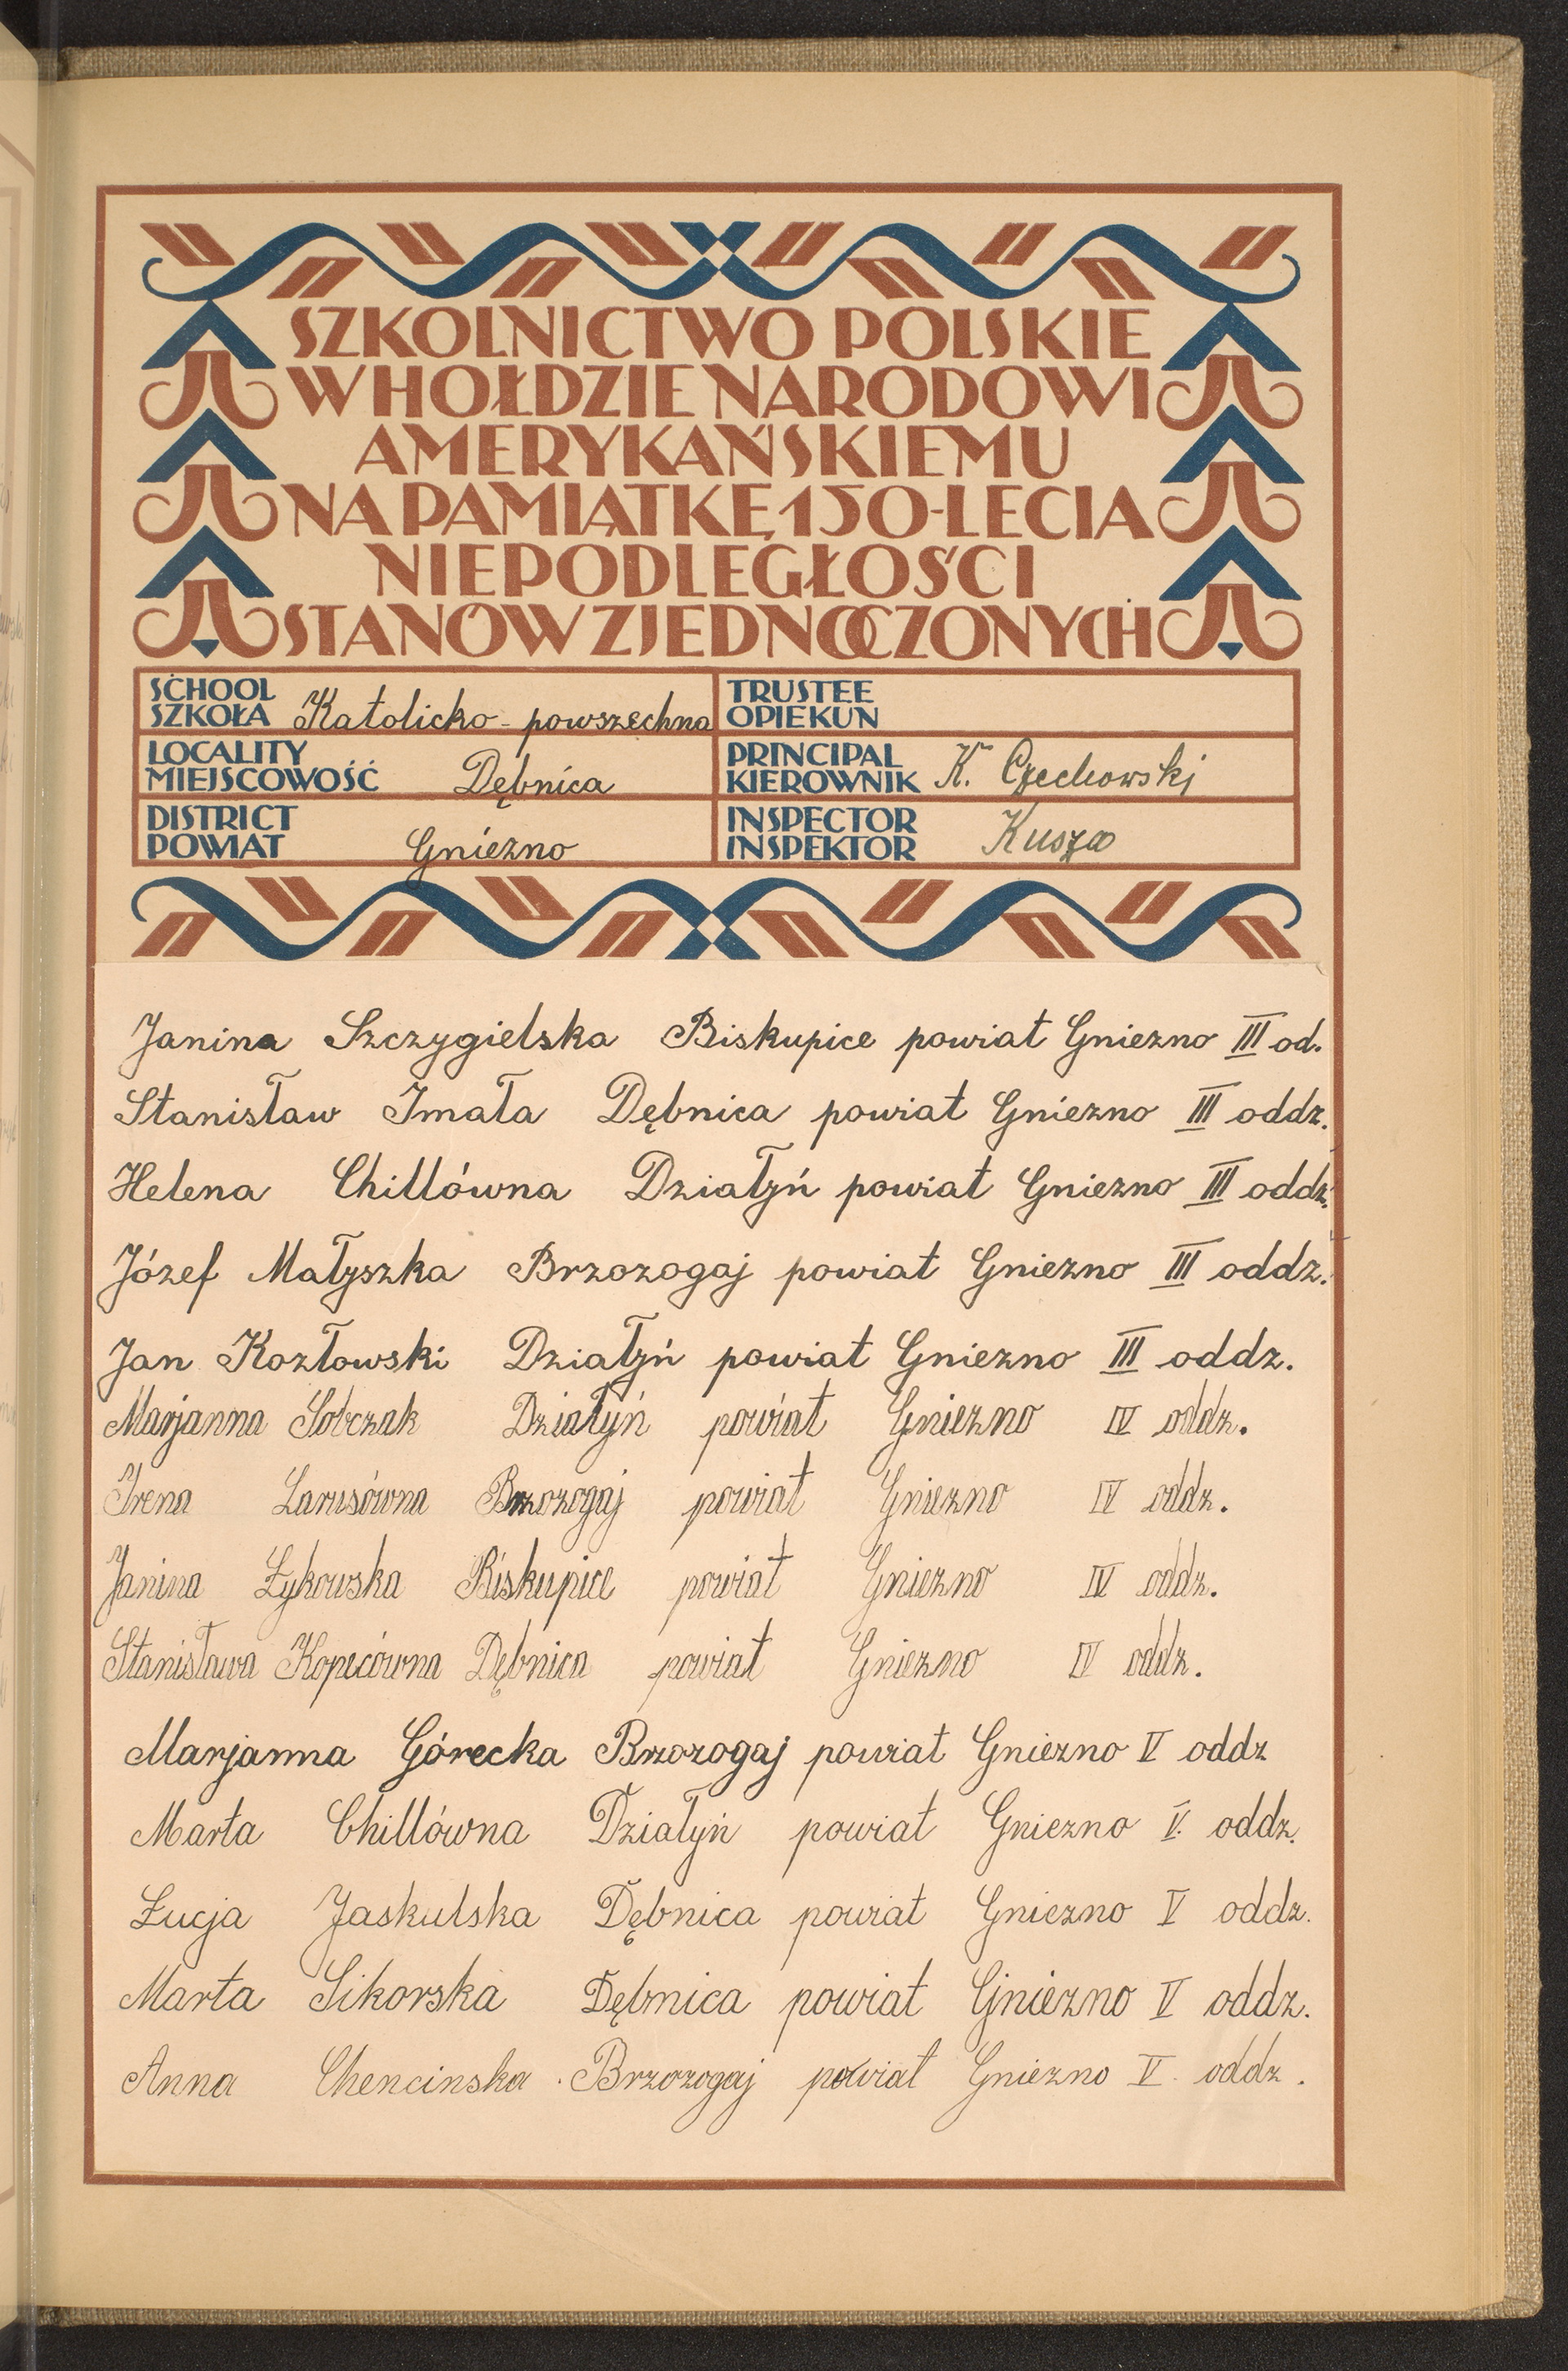 SZKOLNICTWO POLSKIE
W HOŁDZIE NARODOWI
AMERYKAŃSKIEMU
NA PAMIĄTKĘ 150-LECIA
NIEPODLEGŁOŚCI
STANÓW ZJEDNOCZONYCH
SCHOOL
SZKOŁA Katolicko-powszechna
TRUSTEE
OPIEKUN
LOCALITY
MIEJSCOWOŚĆ Dębnica
PRINCIPAL
KIEROWNIK K. Czechowski
DISTRICT
POWIAT Gniezno
INSPECTOR
INSPEKTOR Kusza
Janina Szczygielska Biskupice powiat Gniezno III od.
Stanisław Imała Dębnica powiat Gniezno III oddz.
Helena Chillówna Działyń powiat Gniezno III oddz.
Józef Małyszka Brzozogaj powiat Gniezno III oddz.
Jan Kozłowski Działyń powiat Gniezno III oddz.
Marjanna Sobczak Działyń powiat Gniezno IV oddz.
Irena Larusówna Brzozogaj powiat Gniezno IV oddz.
Janina Łykowska Biskupice powiat Gniezno IV oddz.
Stanisława Kopecówna Dębnica powiat Gniezno IV oddz.
Marjanna Górecka Brzozogaj powiat Gniezno V oddz
Marta Chillówna Działyń powiat Gniezno V. oddz.
Łucja Jaskulska Dębnica powiat Gniezno V oddz.
Marta Sikorska Dębnica powiat Gniezno V oddz.
Anna Chencinska Brzozogaj powiat Gniezno V. oddz.